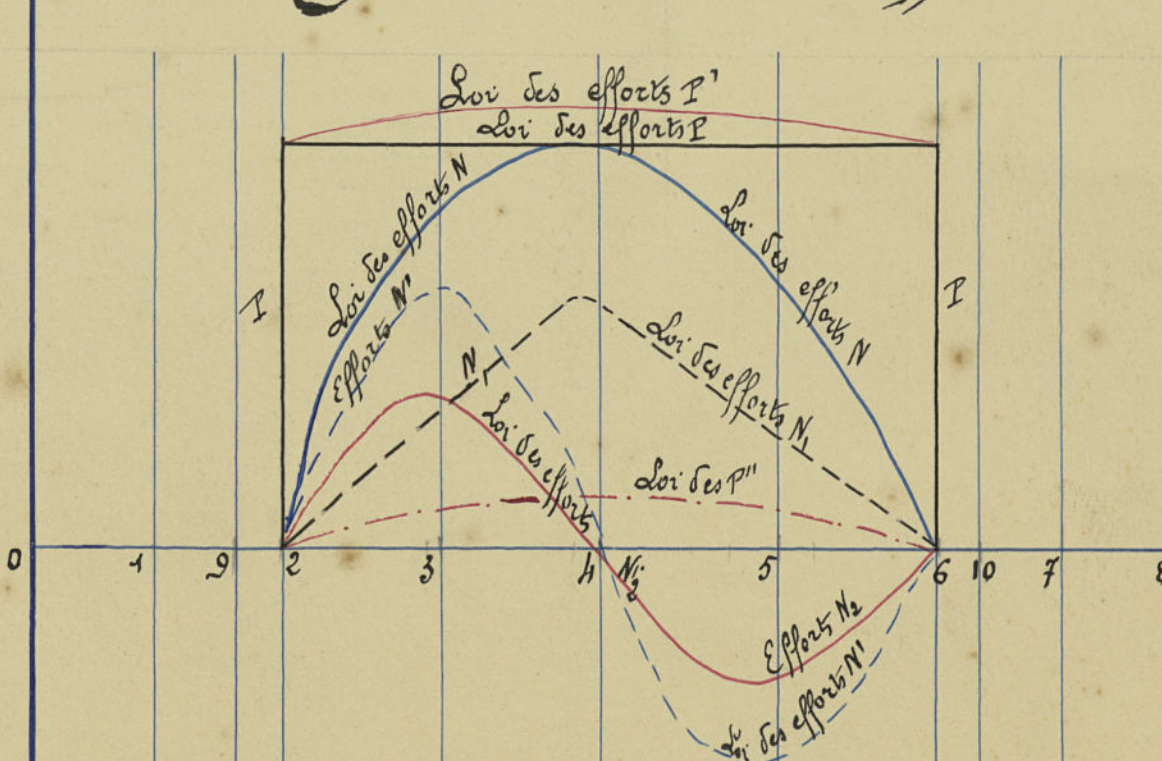 Loi des efforts P'
Loi des efforts P
Loi des efforts N
Loi des efforts N
P
P
Efforts N'
N1
Loi des efforts N1
Loi des efforts
N2
Loi des P"
0 1 9 2 3 4 5 6 10 7 8
Efforts N2
Loi des efforts N'